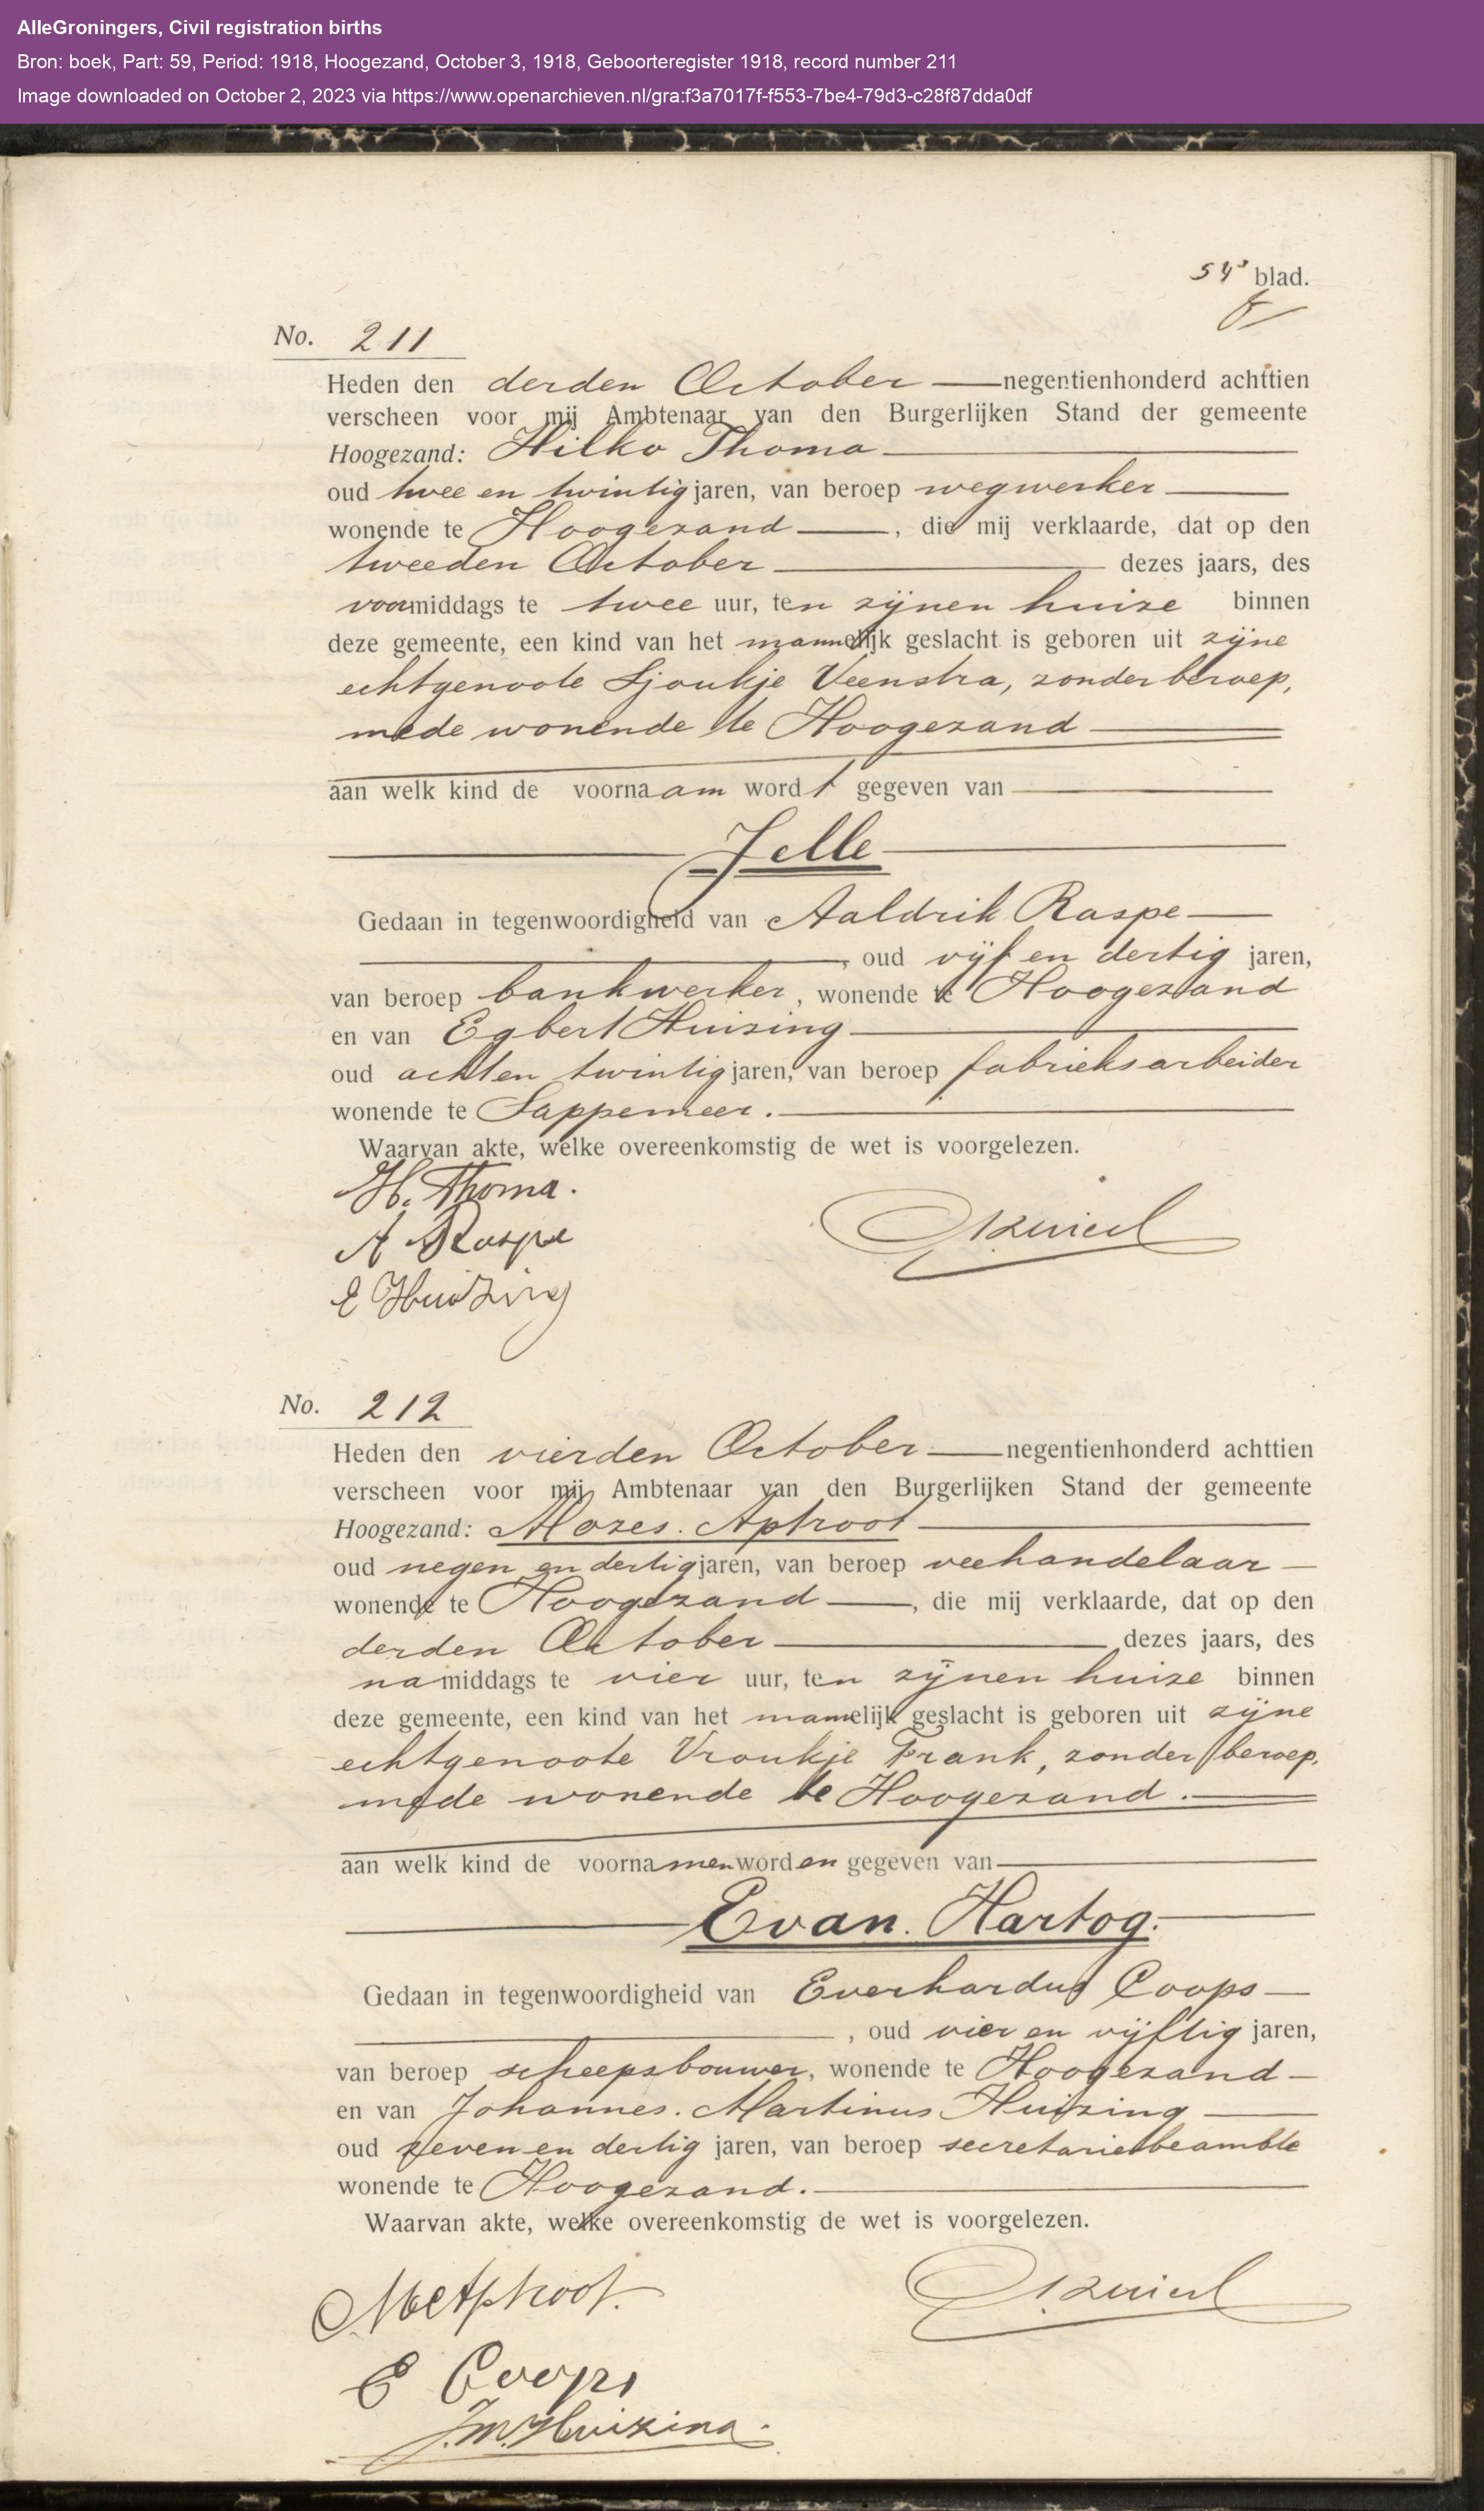 AlleGroningers, Civil registration births
Bron: boek, Part: 59, Period: 1918, Hoogezand, October 3, 1918, Geboorteregister 1918, record number 211
Image downloaded on October 2, 2023 via https://www.openarchieven.nl/gra:f3a7017f-f553-7be4-79d3-c28f87dda0df
54e blad.
No. 211
Heden den derden October negentienhonderd achttien
verscheen voor mij Ambtenaar van den Burgerlijken Stand der gemeente
Hoogezand: Hilko Thoma
oud twee en twintig jaren, van beroep wegwerker
wonende te Hoogezand, die mij verklaarde, dat op den
tweeden October dezes jaars, des
voormiddags te twee uur, ten zijnen huize binnen
deze gemeente, een kind van het mannelijk geslacht is geboren uit zijne
echtgenoote Sjoukje Veenstra, zonder beroep,
mede wonende te Hoogezand
aan welk kind de voornaam wordt gegeven van
Jelle
Gedaan in tegenwoordigheid van Aaldrik Raspe
, oud vijf en dertig jaren,
van beroep bankwerker, wonende te Hoogezand
en van Egbert Huizing
oud acht en twintig jaren, van beroep fabrieksarbeider
wonende te Sappemeer.
Waarvan akte, welke overeenkomstig de wet is voorgelezen.
H. Thoma.
A Raspe
E Huizing
No. 212
Heden den vierden October negentienhonderd achttien
verscheen voor mij Ambtenaar van den Burgerlijken Stand der gemeente
Hoogezand: Mozes. Aptroot
oud negen en dertig jaren, van beroep veehandelaar
wonende te Hoogezand, die mij verklaarde, dat op den
derden October dezes jaars, des
namiddags te vier uur, ten zijnen huize binnen
deze gemeente, een kind van het mannelijk geslacht is geboren uit zijne
echtgenoote Vroukje Frank, zonder beroep,
mede wonende te Hoogezand.
aan welk kind de voornamen worden gegeven van
Evan. Hartog.
Gedaan in tegenwoordigheid van Everhardus Coops
, oud vier en vijftig jaren,
van beroep scheepsbouwer, wonende te Hoogezand
en van Johannes. Martinus Huizing
oud zeven en dertig jaren, van beroep secretariebeambte
wonende te Hoogezand.
Waarvan akte, welke overeenkomstig de wet is voorgelezen.
M Aptroot.
E Coops
J.M. Huizing.